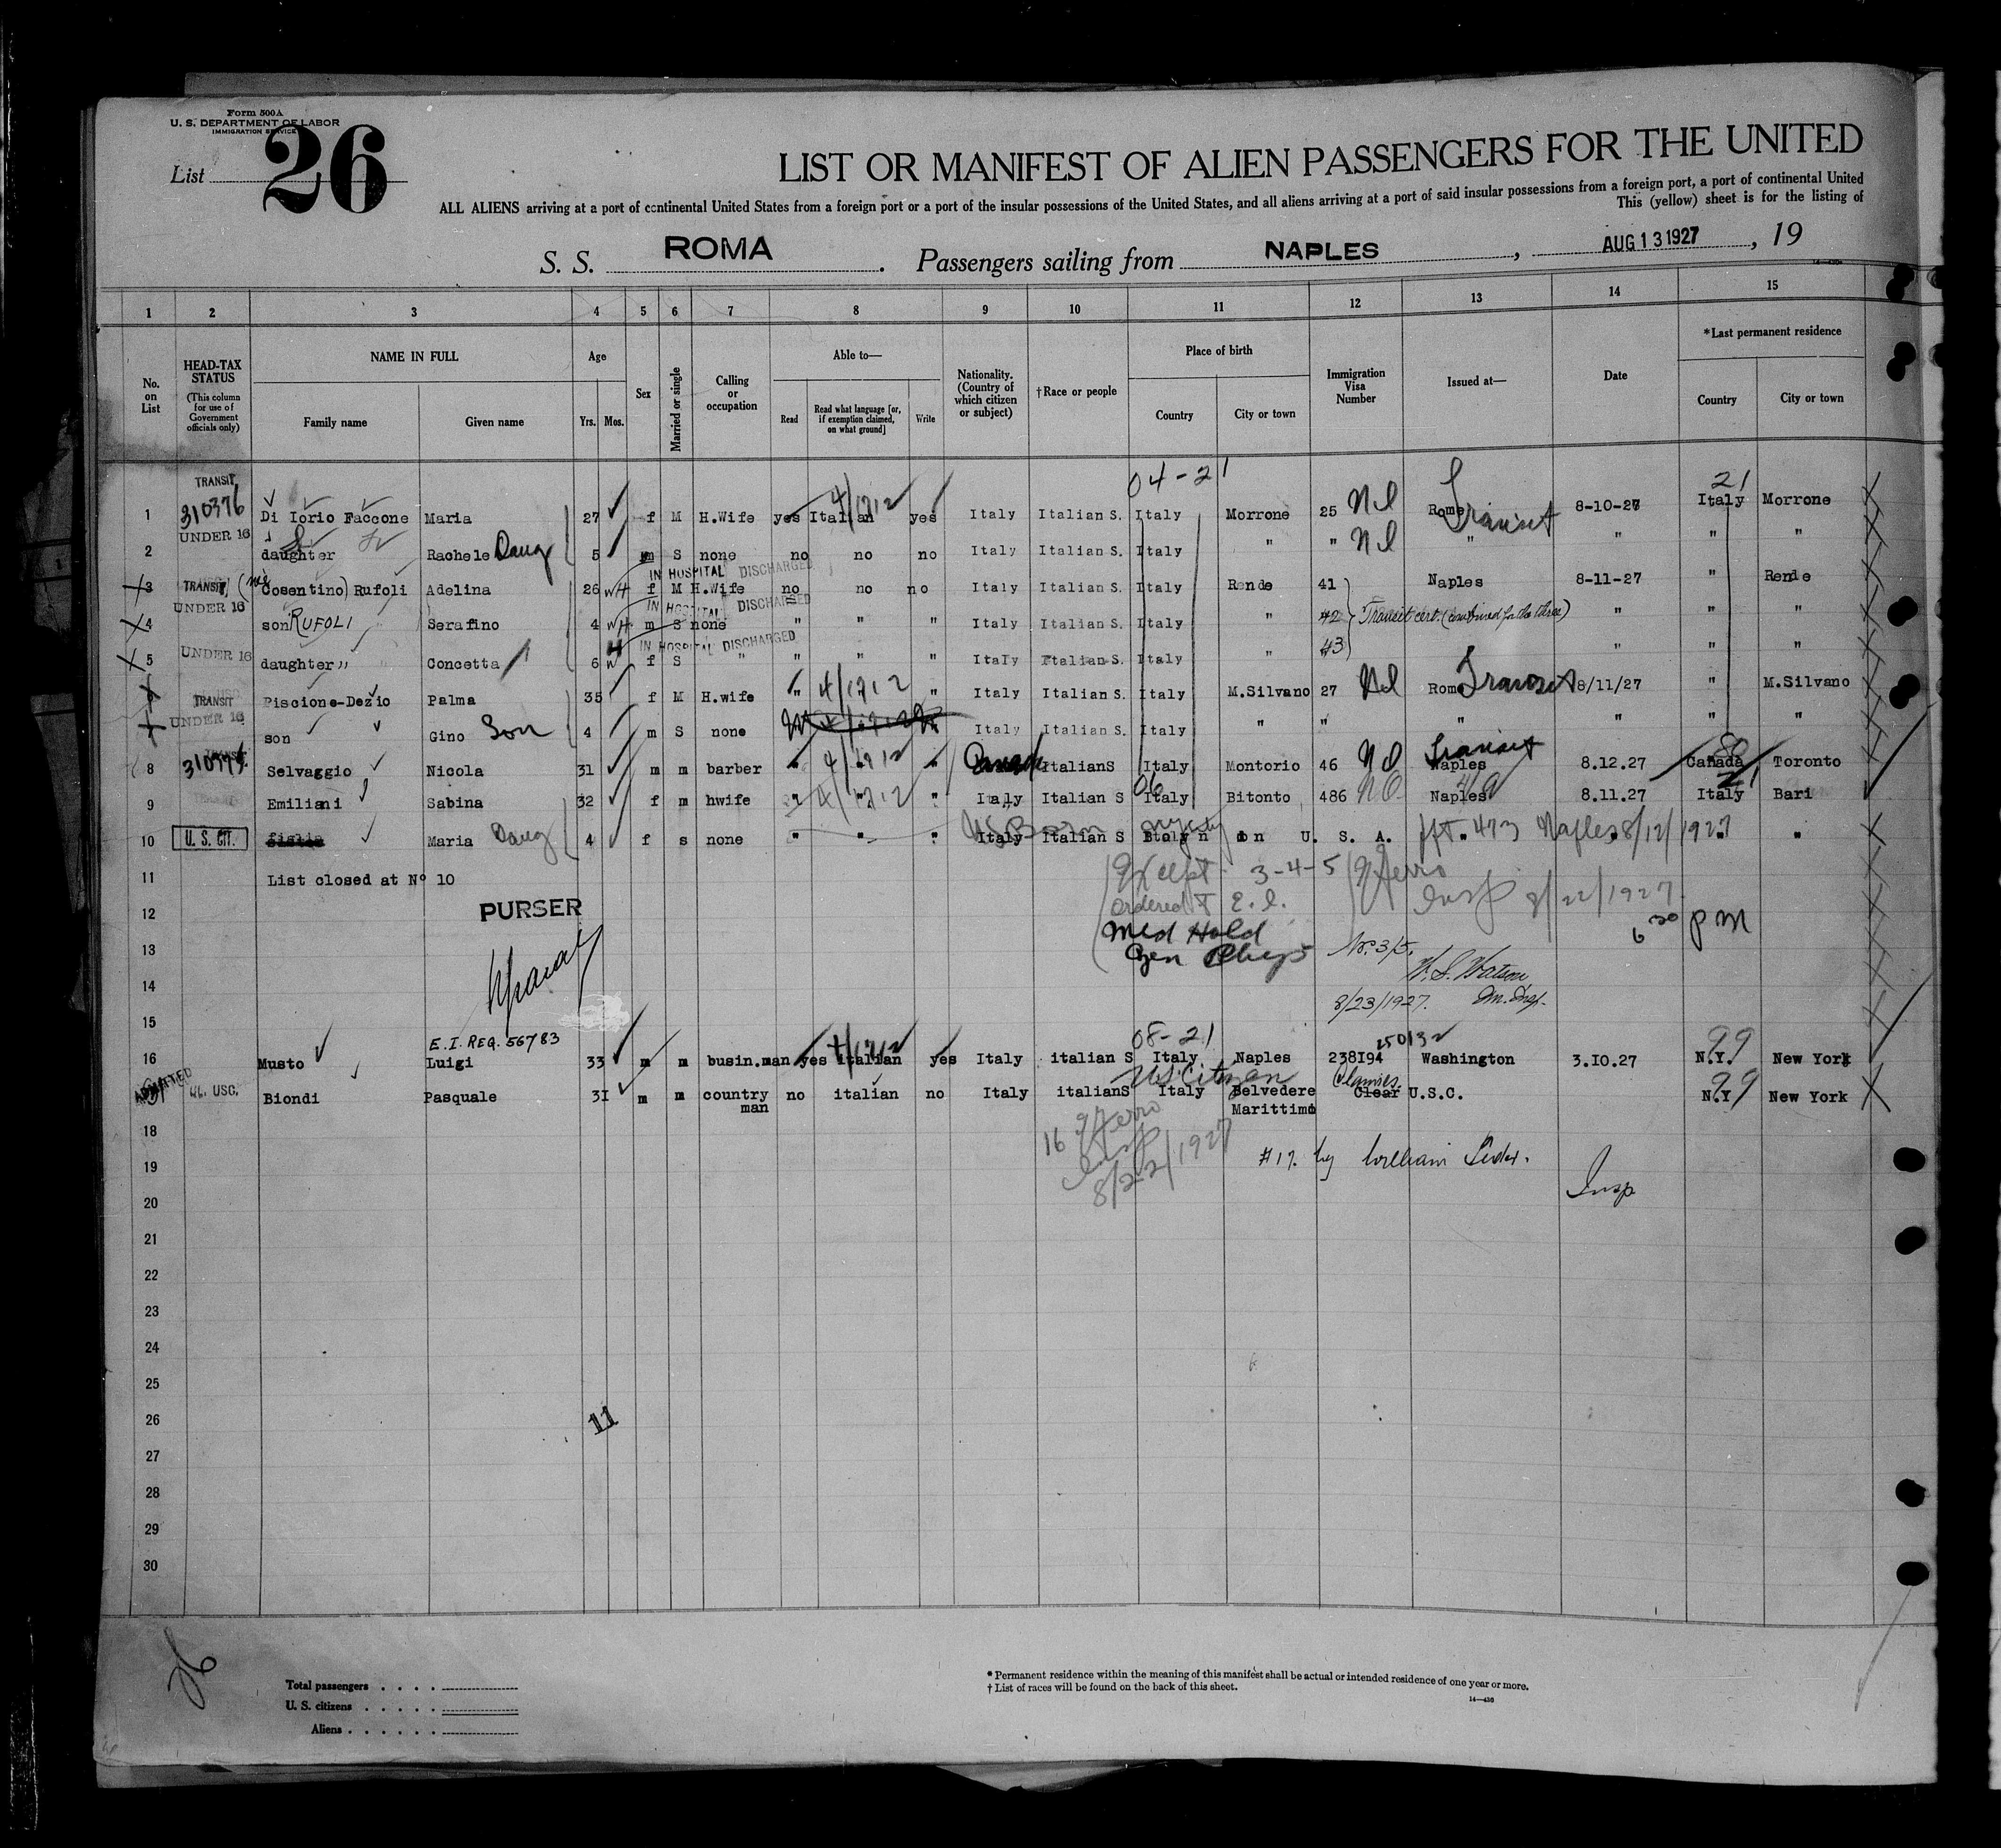 Form 500A
U. S. DEPARTMENT OF LABOR
IMMIGRATION SERVICE
List 26
LIST OR MANIFEST OF ALIEN PASSENGERS FOR THE UNITED
ALL ALIENS arriving at a port of continental United States from a foreign port or a port of the insular possessions of the United States, and all aliens arriving at a port of said insular possessions from a foreign port, a port of continental United
This (yellow) sheet is for the listing of
S. S. ROMA . Passengers sailing from NAPLES , AUG 13 1927 , 19
1 2 3 4 5 6 7 8 9 10 11 12 13 14 15
No. on List
HEAD-TAX STATUS
(This column for use of Government officials only)
NAME IN FULL
Family name Given name
Age
Yrs. Mos.
Sex
Married or single
Calling or occupation
Able to—
Read Read what language [or, if exemption claimed, on what ground] Write
Nationality. (Country of which citizen or subject)
†Race or people
Place of birth
Country City or town
Immigration Visa Number
Issued at—
Date
*Last permanent residence
Country City or town
TRANSIT 04-21 21
1 310376 Di Iorio Faccone Maria 27 f M H.Wife yes Italian yes Italy Italian S. Italy Morrone 25 Rome Transit 8-10-27 Italy Morrone
UNDER 16
2 daughter Rachele Daug 5 m S none no no no Italy Italian S. Italy " " " " " "
IN HOSPITAL DISCHARGED
3 TRANSIT Cosentino) Rufoli Adelina 26 f M H.Wife no no no Italy Italian S. Italy Rende 41 Naples 8-11-27 " Rende
UNDER 16 IN HOSPITAL DISCHARGED
4 son RUFOLI Serafino 4 m S none " " " Italy Italian S. Italy " 42 Transit cert. (combined for the three) " " "
UNDER 16 IN HOSPITAL DISCHARGED
5 daughter " Concetta 6 f S " " " " Italy Italian S. Italy " 43 " " "
TRANSIT Piscione-Dezio Palma 35 f M H.wife " 4/1912 " Italy Italian S. Italy M.Silvano 27 Rome Transit 8/11/27 " M.Silvano
UNDER 16
son Gino Son 4 m S none Italy Italian S. Italy " " " " " "
8 Selvaggio Nicola 31 m m barber " " " Canada ItalianS Italy Montorio 46 Transit Naples 8.12.27 Canada Toronto
9 Emiliani Sabina 32 f m hwife " " " Italy Italian S Italy Bitonto 486 Naples 8.11.27 Italy Bari
10 U. S. CIT. figlia Maria Daug 4 f s none " " " Italy Italian S U. S. A. 473 Naples 8/12/1927 " "
11 List closed at Nº 10
Except 3-4-5
Insp 8/22/1927
12 PURSER
ordered
6 30 PM
Med Hold
13
14
W. S. Watson
8/23/1927. Im. Insp.
15
E.I. REQ. 56783 08-21 99
16 Musto Luigi 33 m m busin.man yes italian yes Italy italian S Italy Naples 238194 Washington 3.10.27 N.Y. New York
US Citizen 99
ADMITTED USC. Biondi Pasquale 31 m m country man no italian no Italy italianS Italy Belvedere Marittimo Clear U.S.C. N.Y New York
18
16
Insp
8/22/1927
19 #17. by William
Insp
20
21
22
23
24
25
26 11
27
28
29
30
Total passengers
U. S. citizens
Aliens
* Permanent residence within the meaning of this manifest shall be actual or intended residence of one year or more.
† List of races will be found on the back of this sheet.
14—430